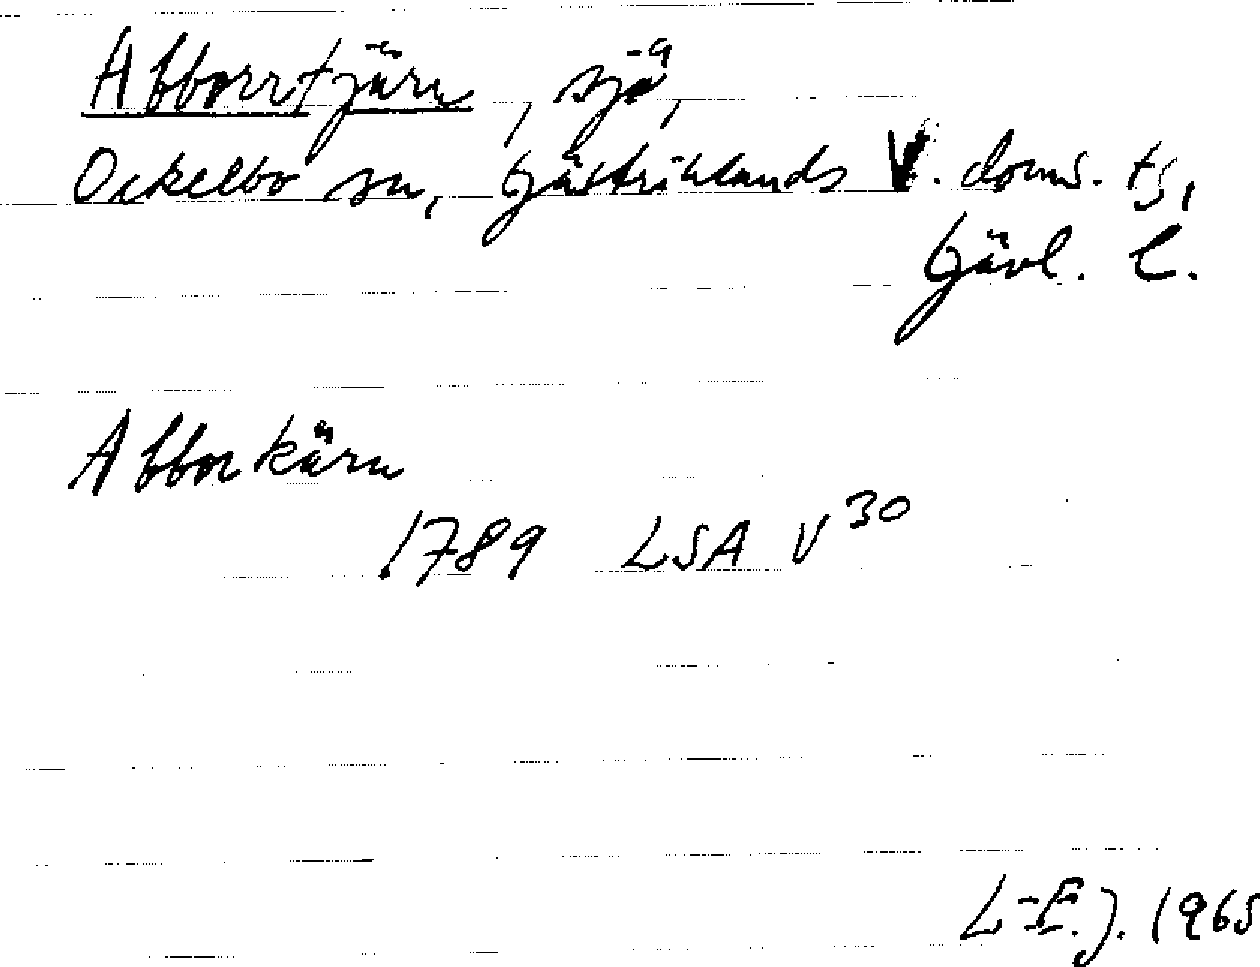 Abborrtjärn, sjö,
Ockelbo sn, Gästriklands V. doms. ts,
Gävl. l.
Abborkärn
1789 LSA V 30
L-E. J. 1965